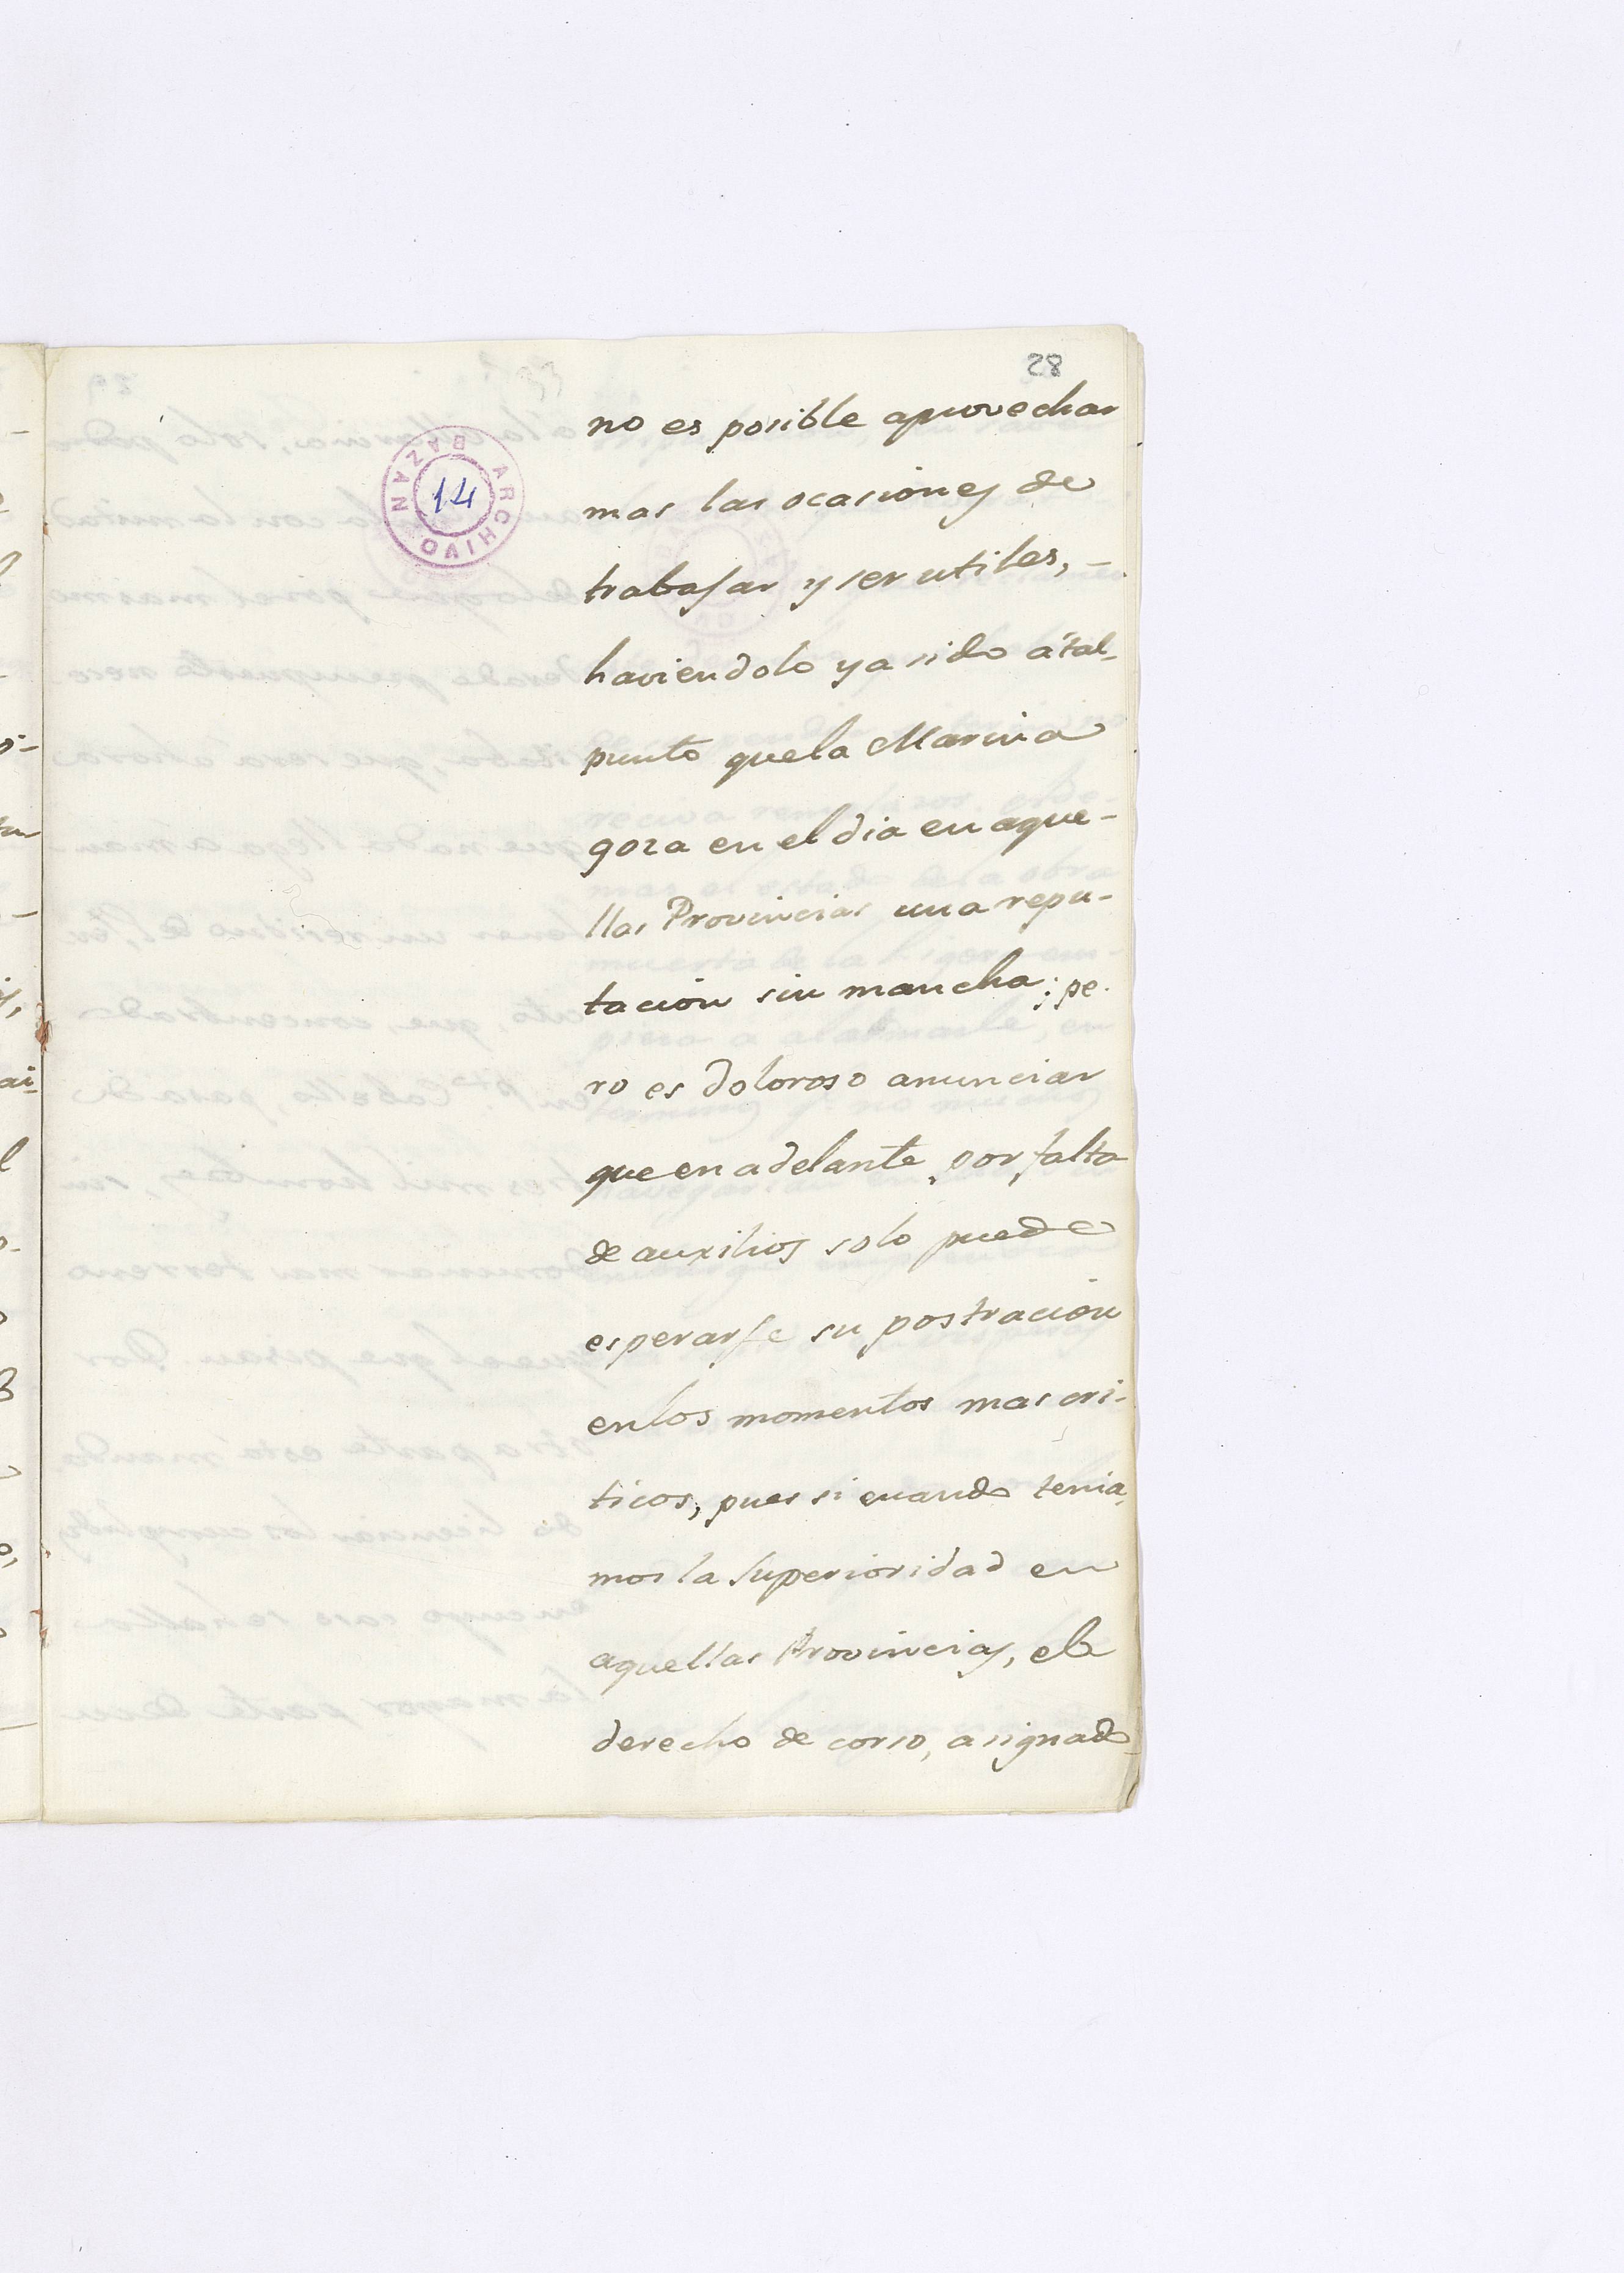 28
BAZAN ARCHIVO
14
no es posible aprovechar
mas las ocasiones de
trabajar y ser utiles, -
haviendolo ya sido á tal-
punto que la Marina
goza en el dia en aque-
llas Provincias una repu-
tacion sin mancha; pe-
ro es doloroso anunciar
que en adelante, por falta
de auxilios solo puede
esperarse su postracion
en los momentos mas cri-
ticos, pues si cuando tenia-
mos la superioridad en
aquellas Provincias, el
derecho de corso, asignado